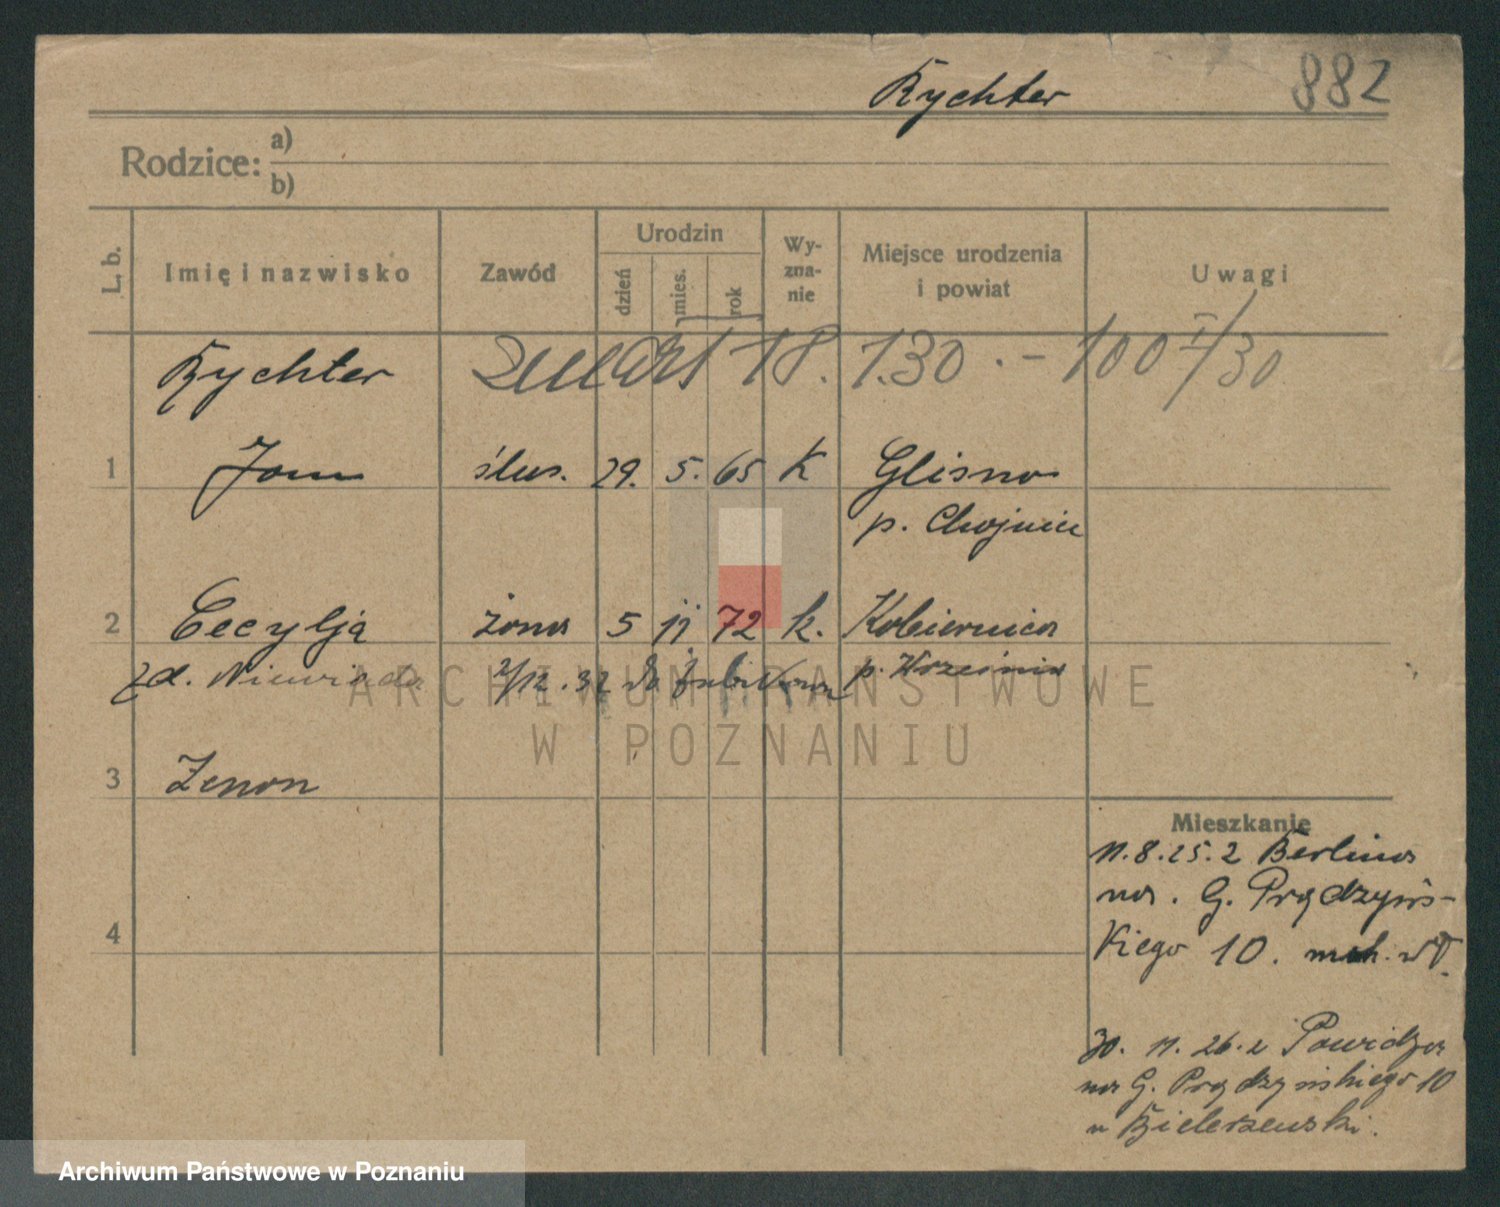 Rychter
882
Rodzice:
a)
b)
L. b.
Imię i nazwisko
Zawód
Urodzin
dzień
mies.
rok
Wy-
zna-
nie
Miejsce urodzenia
i powiat
Uwagi
Rychter
zmarł 18. 1.30 . – 100 I/30
1 Jan ślus. 29. 5. 65 K Glisno
p. Chojnice
2 Cecylja żona 5 11 72 k. Kobiernica
zd. Niewiada 2/12.32 do p. Września
ARCHIWUM PAŃSTWOWE
W POZNANIU
3 Zenon
4
Mieszkanie
11.8.25. z Berlina
na. G. Prądzyńs-
kiego 10.
30. 11. 26. z Powidza
na G. Prądzyńskiego 10
u
Archiwum Państwowe w Poznaniu